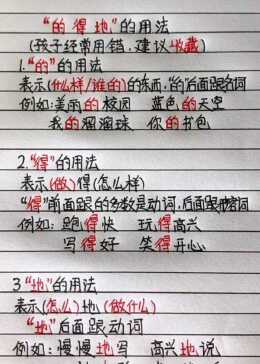 “的 得 地”的用法
(孩子经常用错,建议收藏)
1.“的”的用法
表示(什么样/谁的)的东西,“的”后面跟名词
例如:美丽的校园 蓝色的天空
我的溜溜球 你的书包
2.“得”的用法
表示(做)得(怎么样)
“得”前面跟的多数是动词,后面跟形容词
例如:跑得快 玩得高兴
写得好 笑得开心
3“地”的用法
表示(怎么)地(做什么)
“地”后面跟动词
例如:慢慢地写 高兴地说